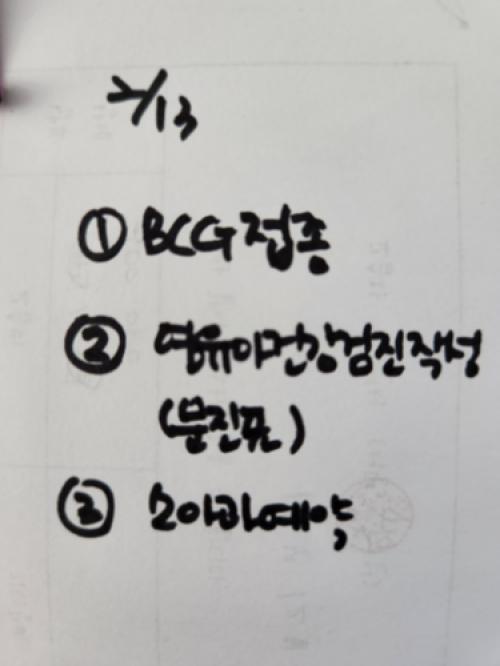 2/13
① BCG 접종
② 영유아건강검진작성
(문진표)
③ 소아과예약